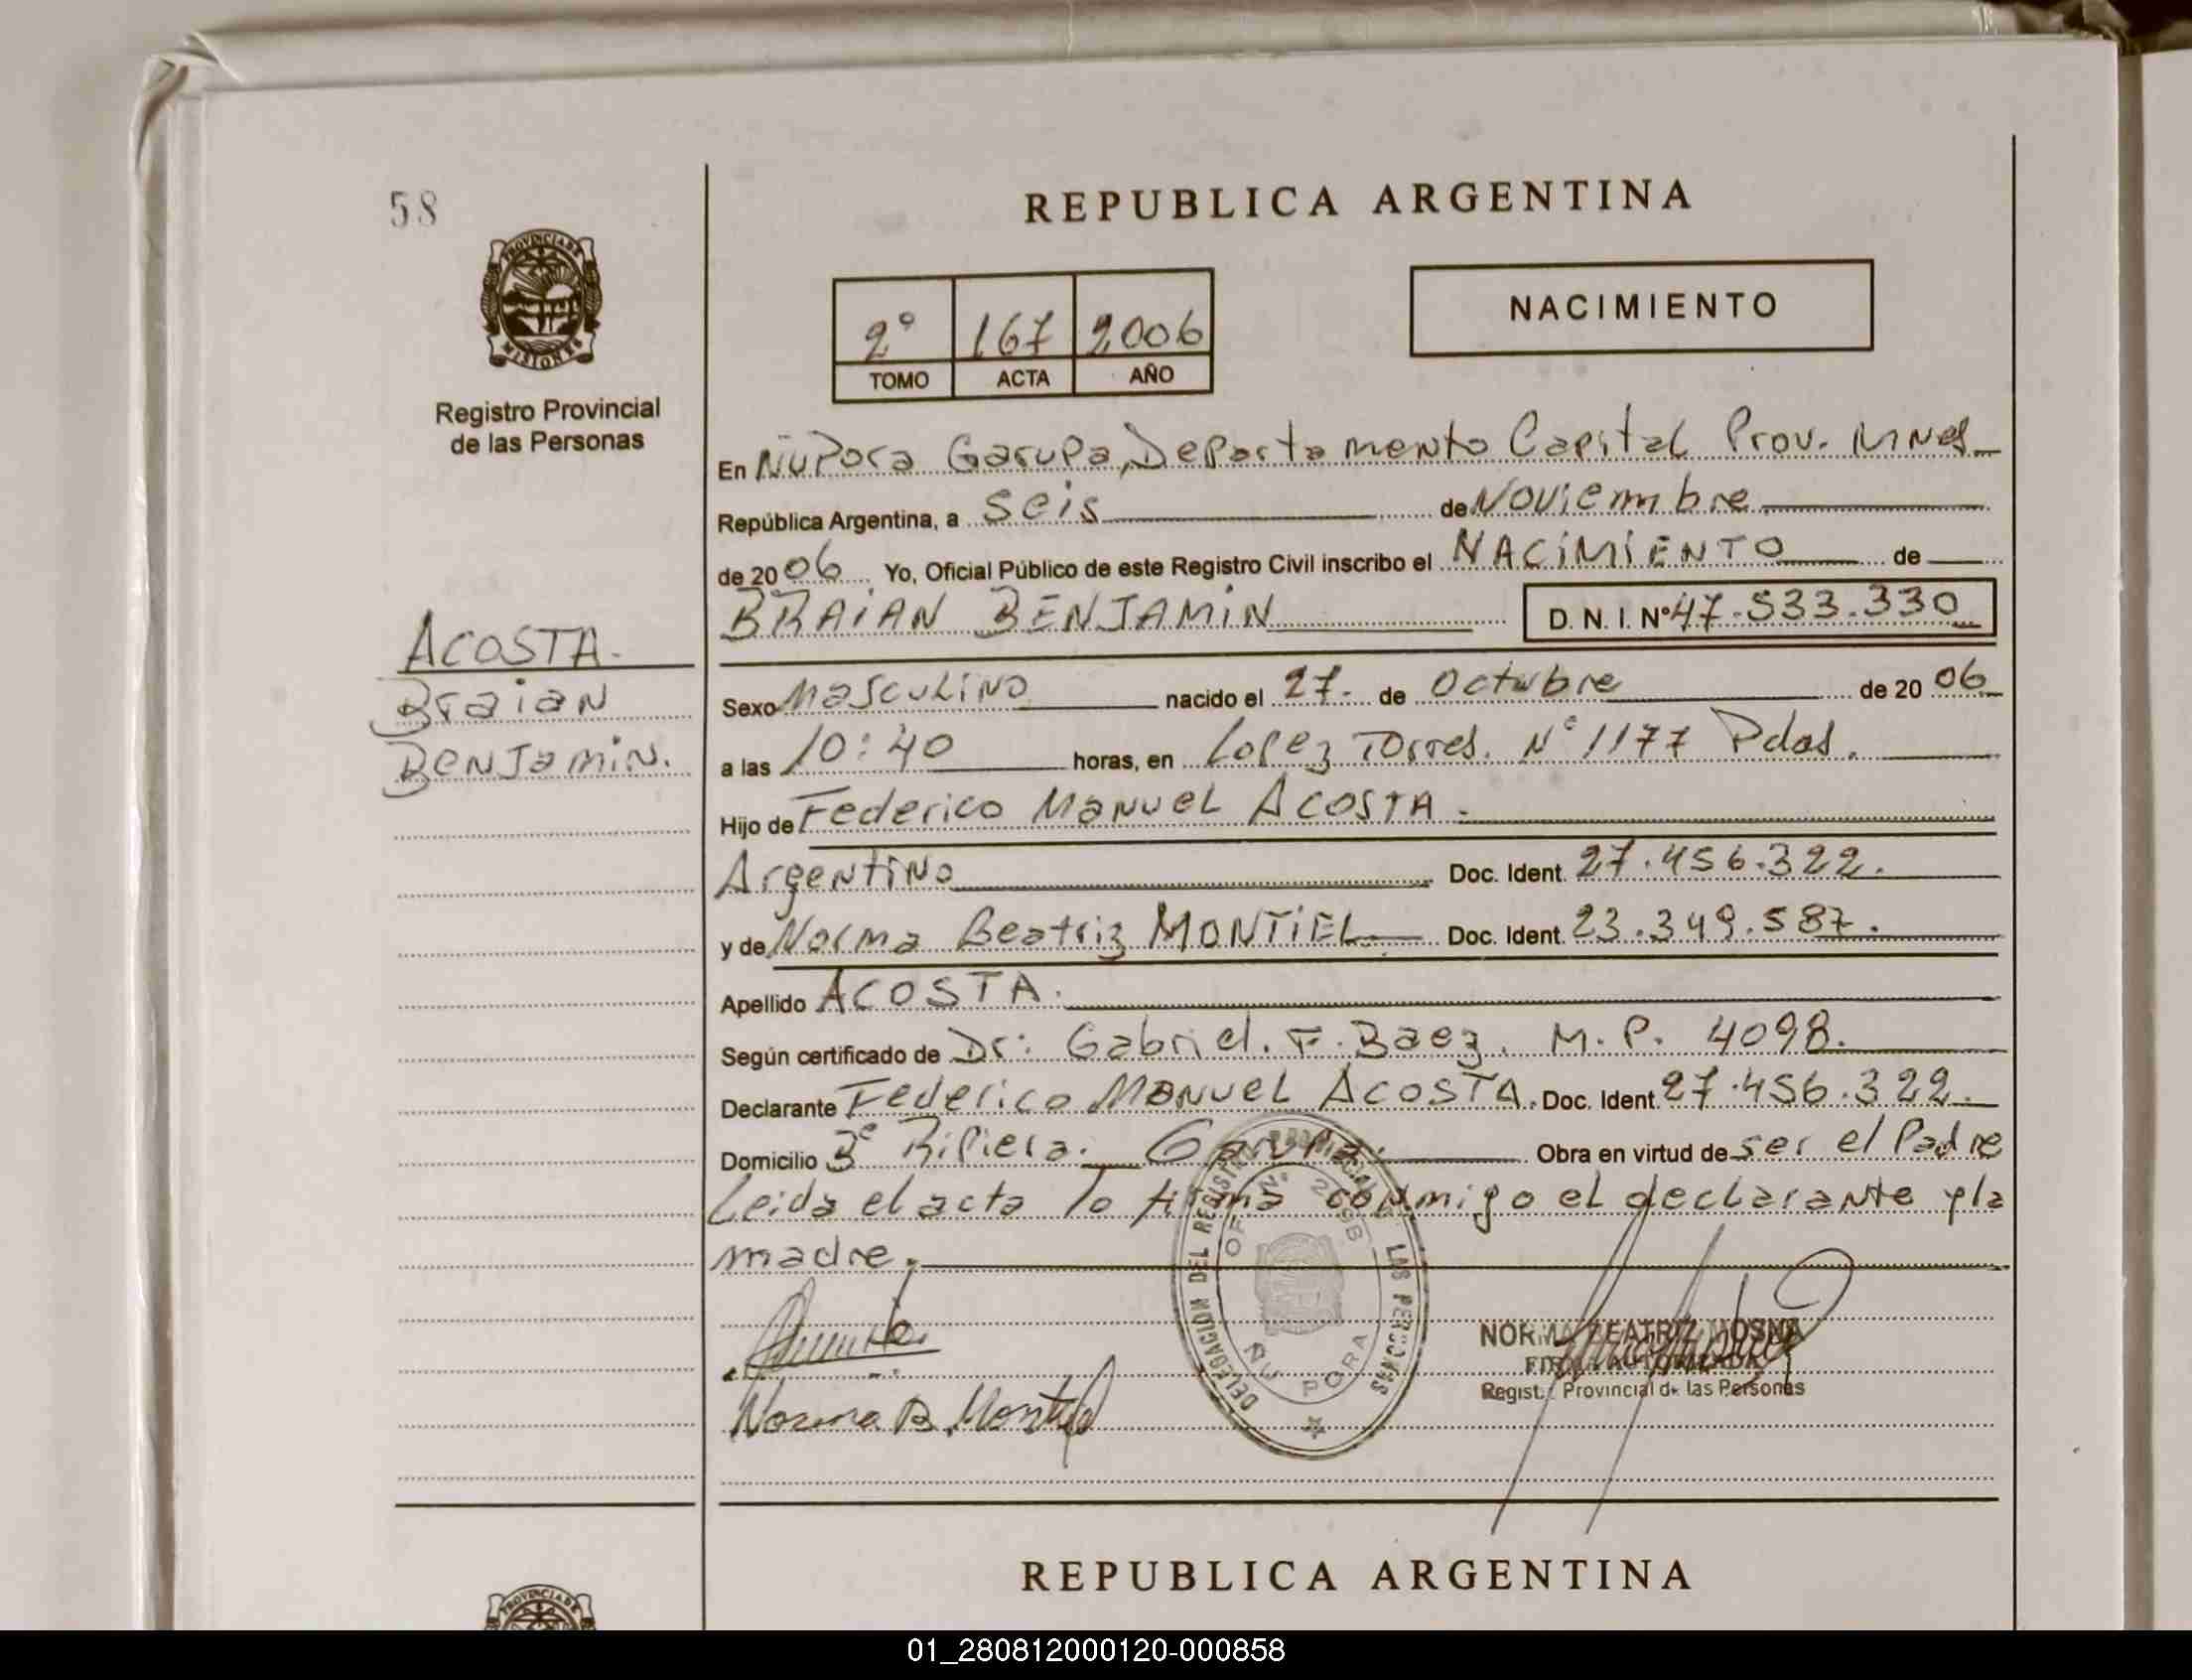 58
PROVINCIA DE
MISIONES
Registro Provincial
de las Personas
ACOSTA.
Braian
Benjamin.
REPUBLICA ARGENTINA
2º 167 2006
TOMO ACTA AÑO
NACIMIENTO
En Ñu Pora Garupa, Departamento Capital Prov. Mnes.
República Argentina, a seis de Noviembre
de 2006 Yo, Oficial Público de este Registro Civil inscribo el NACIMIENTO de
BRAIAN BENJAMIN D. N. I. Nº 47.533.330
Sexo Masculino nacido el 27. de Octubre de 2006
a las 10:40 horas, en Lopez Torres. Nº 1177 Pdas.
Hijo de Federico Manuel ACOSTA.
Argentino Doc. Ident. 27.456.322.
y de Norma Beatriz MONTIEL Doc. Ident. 23.349.587.
Apellido ACOSTA.
Según certificado de Dr: Gabriel. F. Baez. M. P. 4098.
Declarante Federico Manuel ACOSTA. Doc. Ident. 27.456.322.
Domicilio 3º Ripiera. Garupa. Obra en virtud de ser el Padre
Leida el acta la firma conmigo el declarante y la
madre.
DELEGACION DEL REGISTRO PROVINCIAL DE LAS PERSONAS
OF. Nº 2098
ÑU PORA
NORMA BEATRIZ MOSNA
FIRMA AUTORIZADA
Regist. Provincial de las Personas
Norma B. Montiel
REPUBLICA ARGENTINA
PROVINCIA DE
01_280812000120-000858